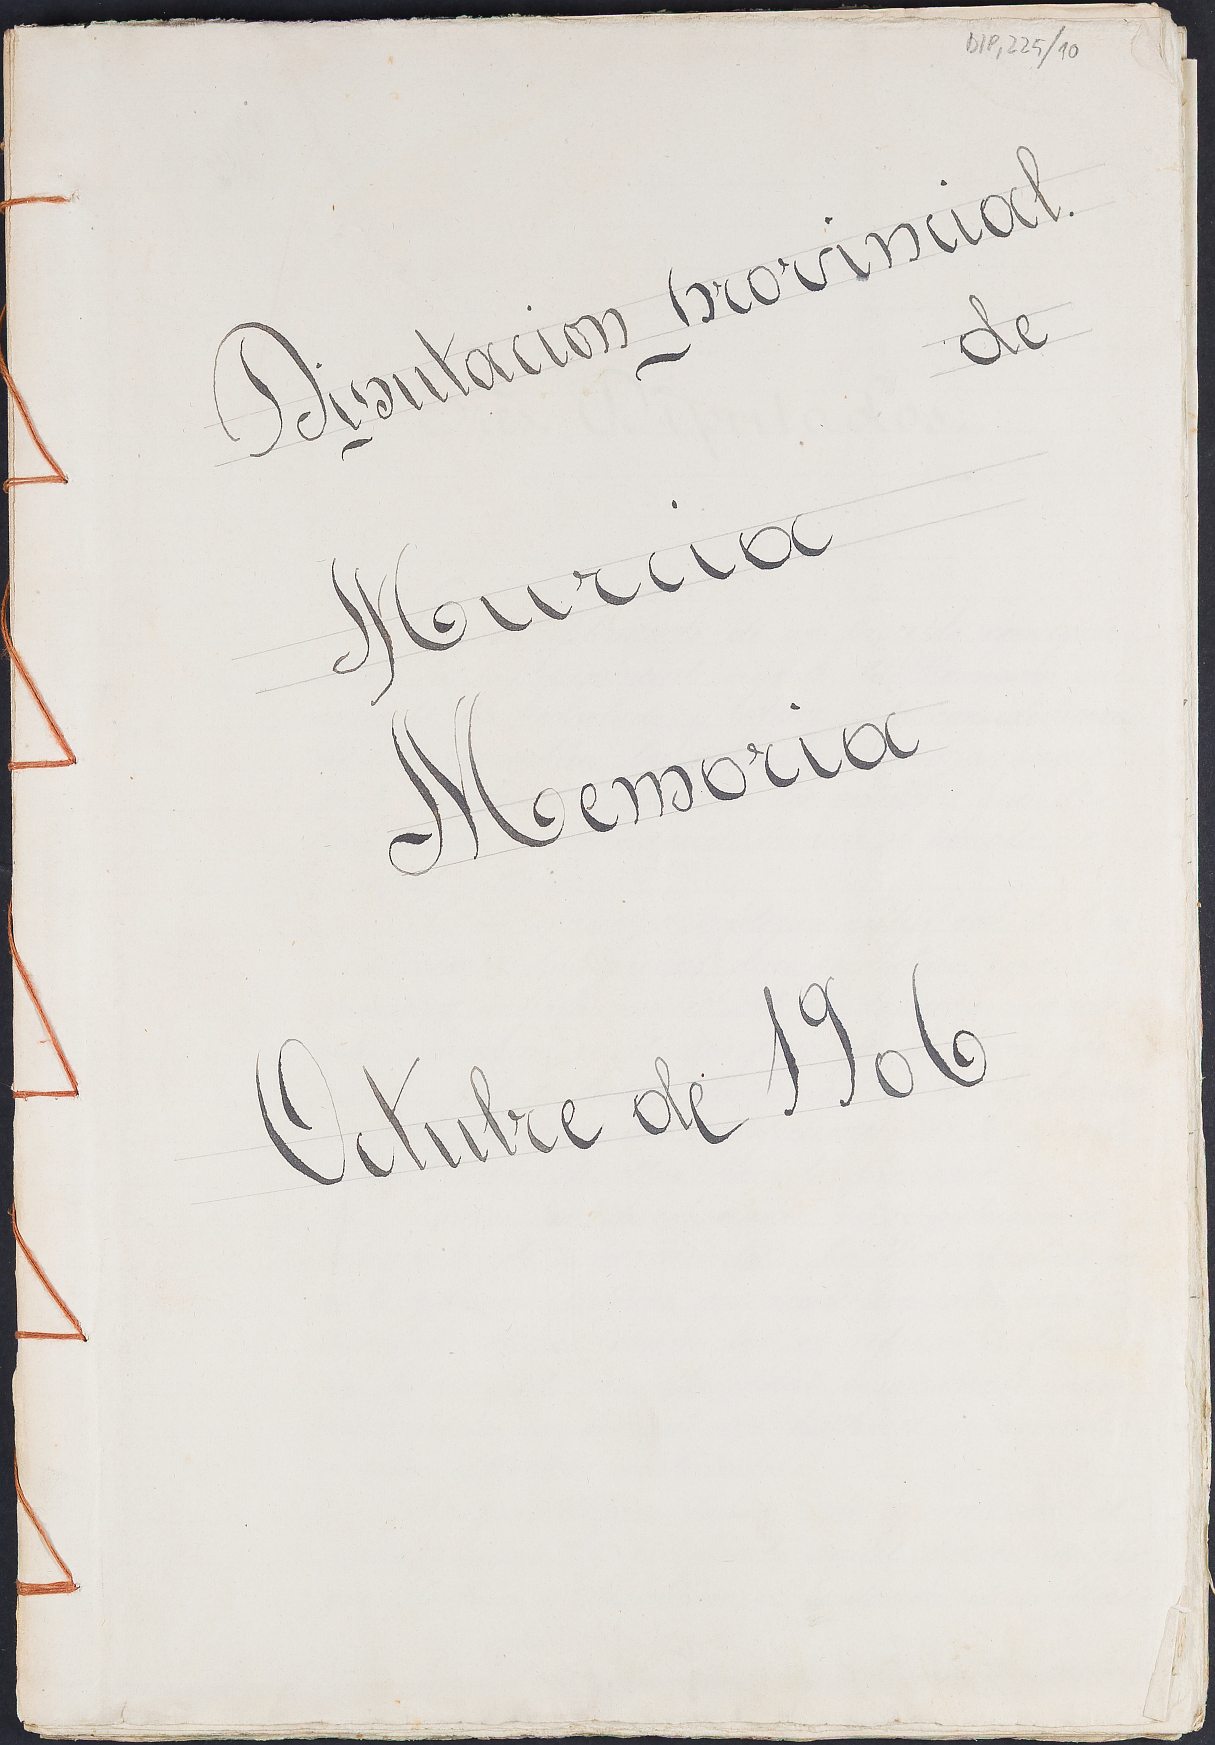 DIP, 225/10
Diputacion provincial.
de
Murcia
Memoria
Octubre de 1906